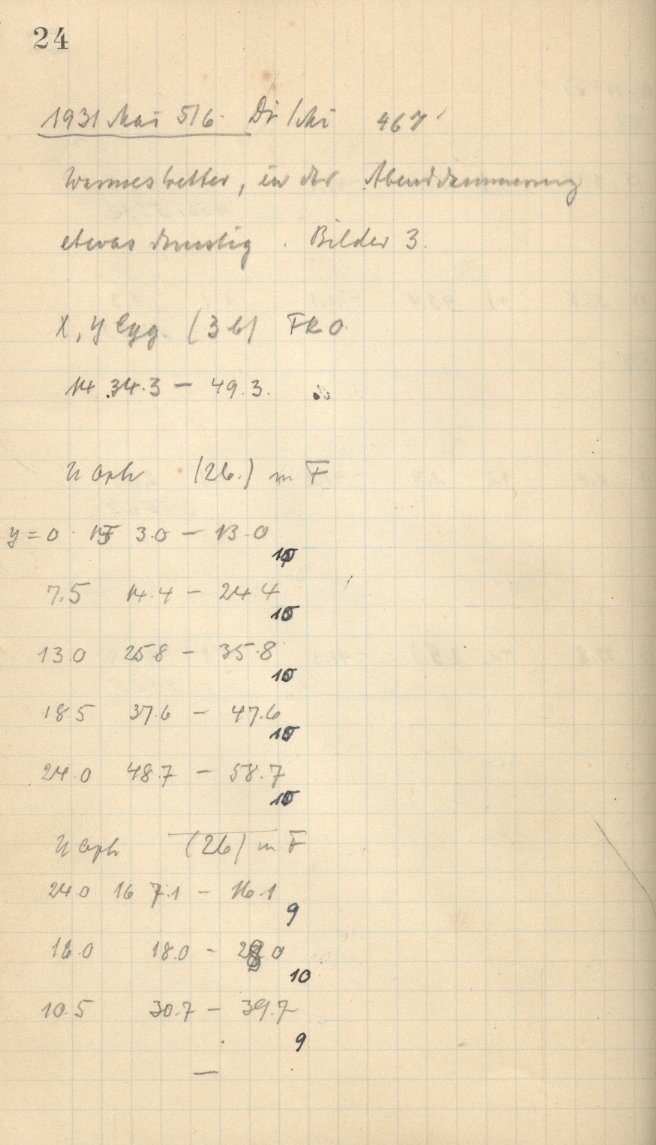 24
1931 Mai 5/6. Di/Mi 967
Warmes Wetter, in der Abenddämmerung
etwas dunstig. Bilder 3.
X, Y Cyg. (36)
14 34.3 – 49.3.
U Oph (26.) m F
y = 0 15 3.0 – 13.0
10
7.5 14.4 – 24.4
10
13.0 25.8 – 35.8
10
18.5 37.6 – 47.6
10
24.0 48.7 – 58.7
10
U Oph (26) m F
24.0 16 7.1 – 16.1
9
16.0 18.0 – 28.0
10
10.5 30.7 – 39.7
9
—